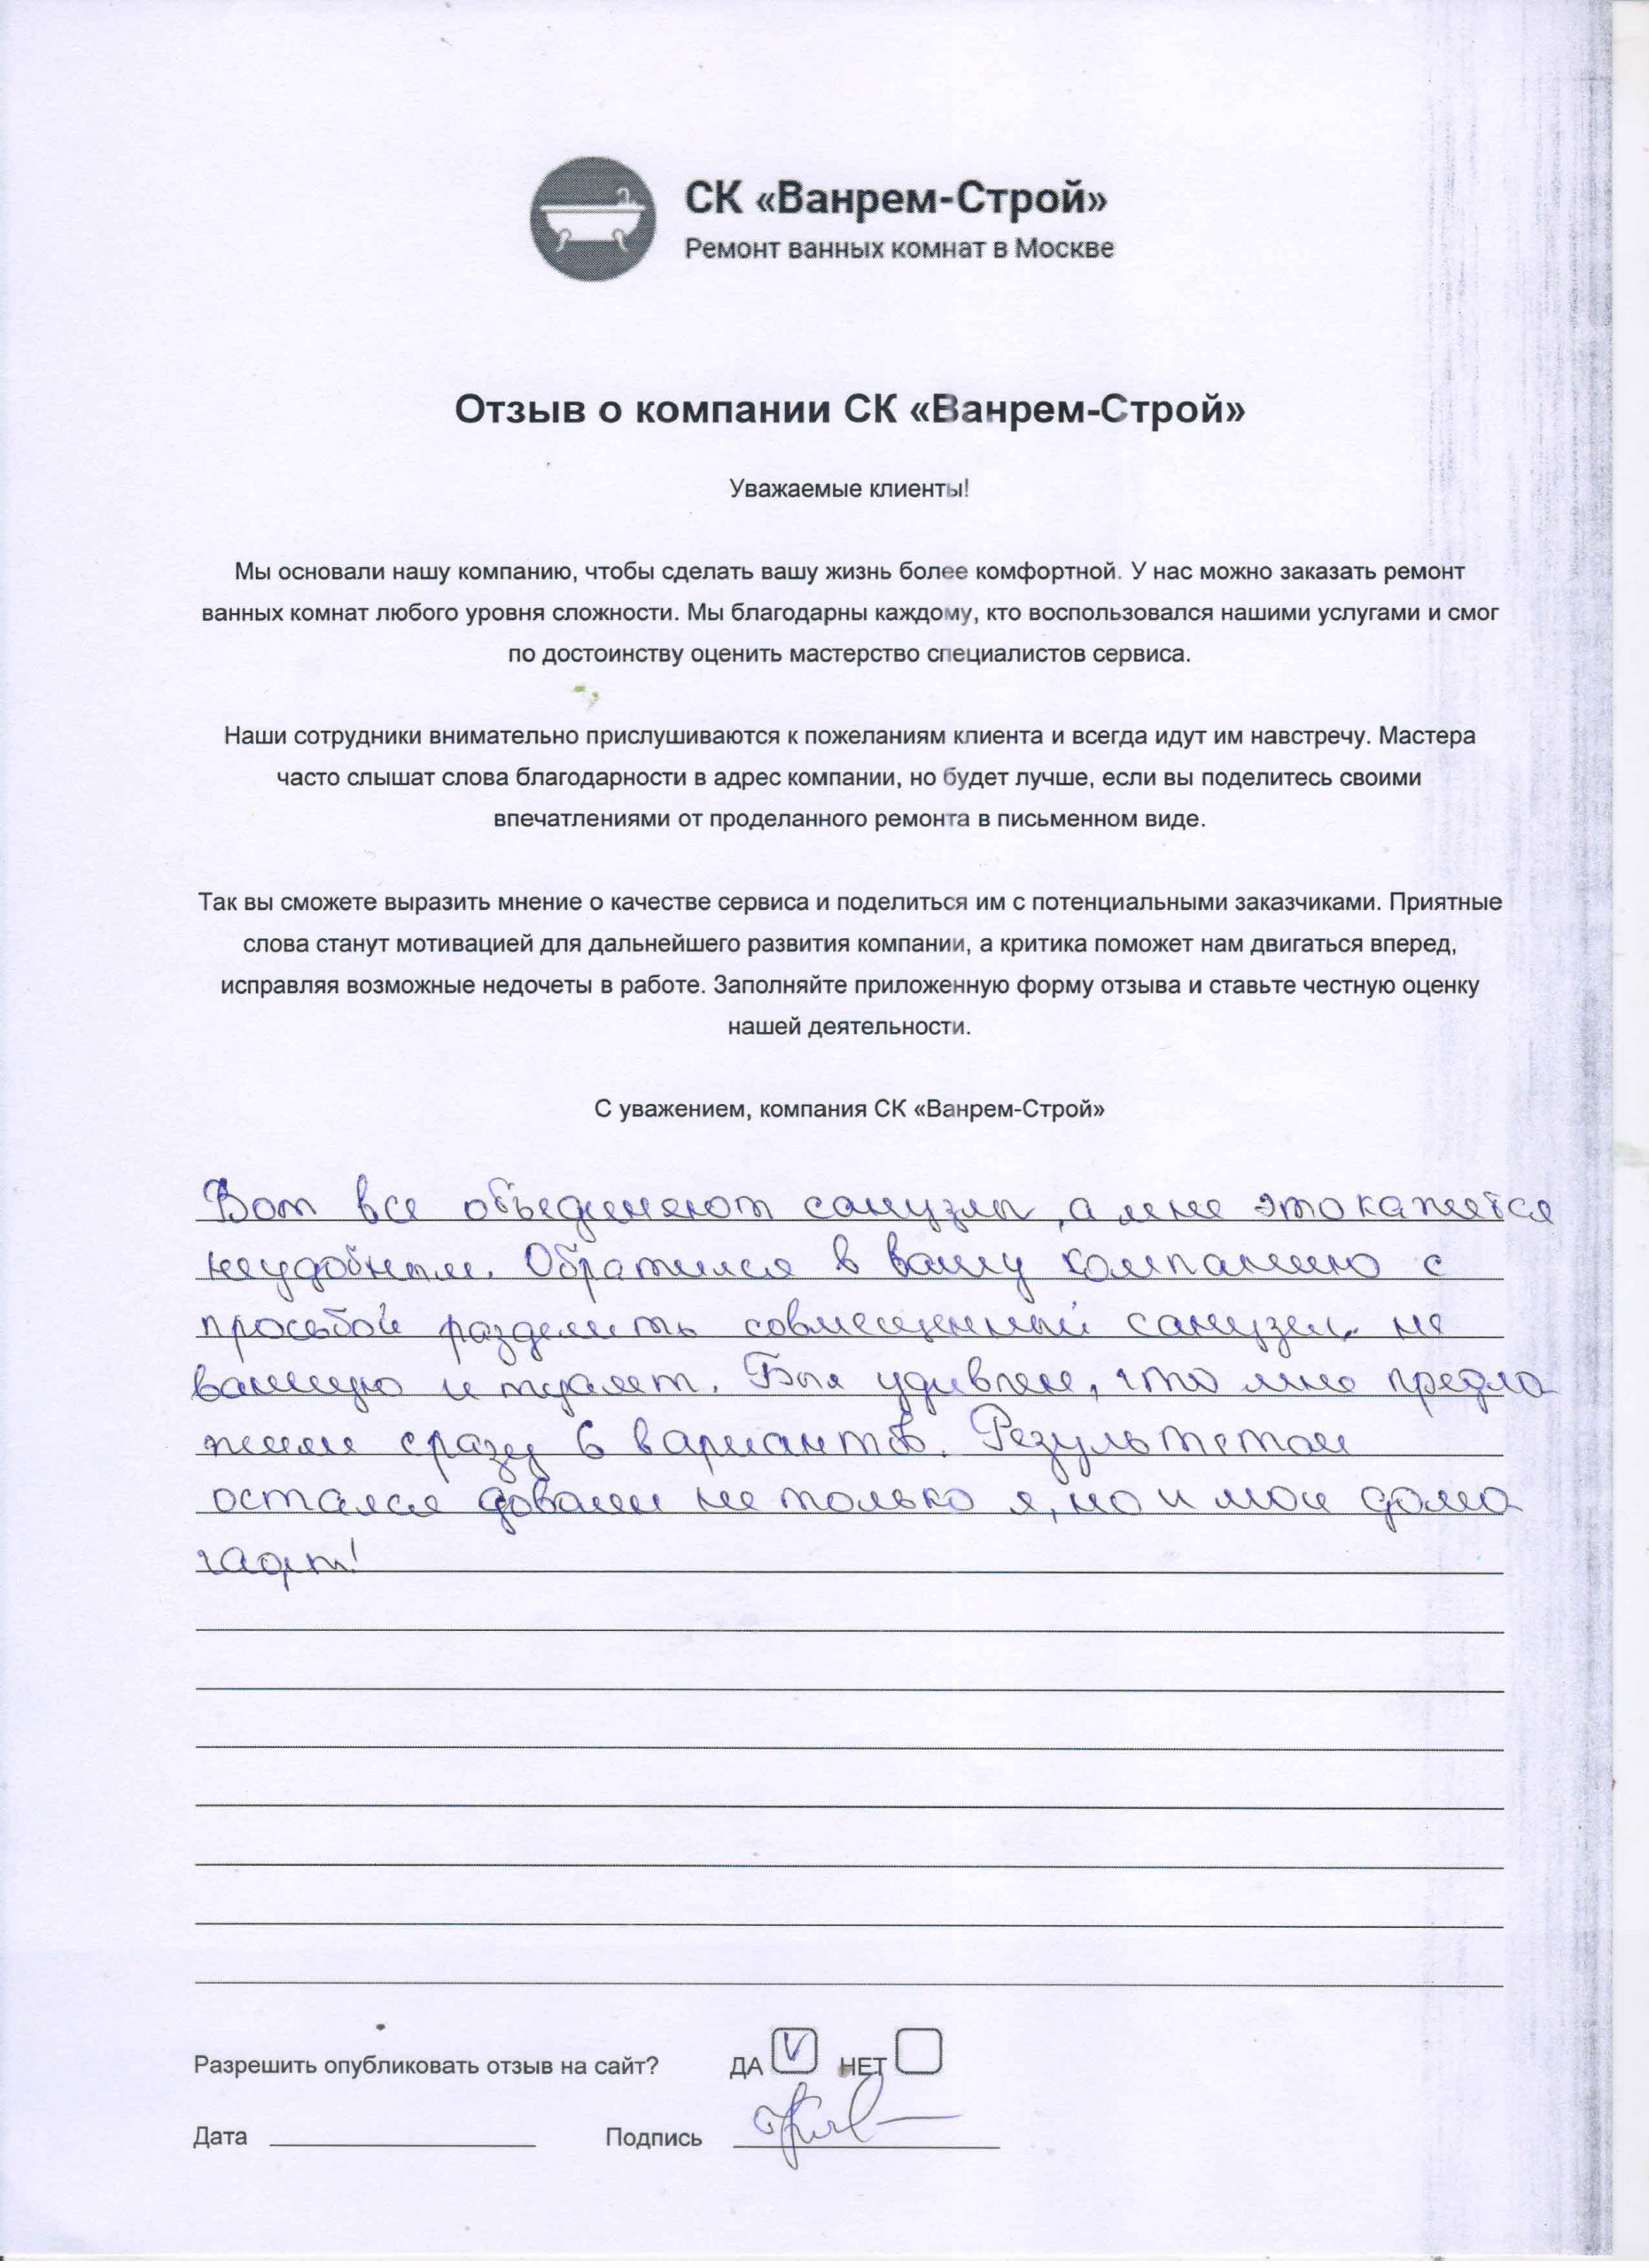 СК «Ванрем-Строй»
Ремонт ванных комнат в Москве
Отзыв о компании СК «Ванрем-Строй»
Уважаемые клиенты!
Мы основали нашу компанию, чтобы сделать вашу жизнь более комфортной. У нас можно заказать ремонт
ванных комнат любого уровня сложности. Мы благодарны каждому, кто воспользовался нашими услугами и смог
по достоинству оценить мастерство специалистов сервиса.
Наши сотрудники внимательно прислушиваются к пожеланиям клиента и всегда идут им навстречу. Мастера
часто слышат слова благодарности в адрес компании, но будет лучше, если вы поделитесь своими
впечатлениями от проделанного ремонта в письменном виде.
Так вы сможете выразить мнение о качестве сервиса и поделиться им с потенциальными заказчиками. Приятные
слова станут мотивацией для дальнейшего развития компании, а критика поможет нам двигаться вперед,
исправляя возможные недочеты в работе. Заполняйте приложенную форму отзыва и ставьте честную оценку
нашей деятельности.
С уважением, компания СК «Ванрем-Строй»
Вот все объединяют санузлы, а мне это кажется
неудобным. Обратился в вашу компанию с
просьбой разделить совмещенный санузел на
ванную и туалет. Был удивлен, что мне предло
жили сразу 6 вариантов. Результатом
остался доволен не только я, но и мои домо
чадцы!
Разрешить опубликовать отзыв на сайт? ДА V НЕТ
Дата Подпись